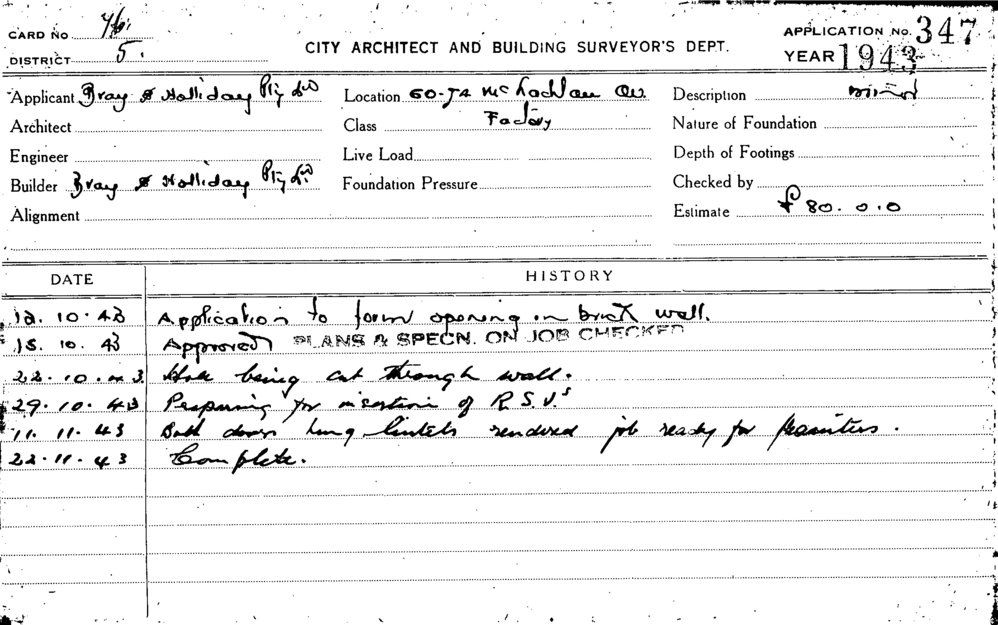 CARD NO.
DISTRICT 5.
CITY ARCHITECT AND BUILDING SURVEYOR'S DEPT.
APPLICATION NO. 347
YEAR 1943
Applicant Bray & Holliday Pty Ld
Location 60-72 McLachlan Av.
Description minor
Architect
Class Factory
Nature of Foundation
Engineer
Live Load
Depth of Footings
Builder Bray & Holliday Pty Ld
Foundation Pressure
Checked by
Alignment
Estimate £80.0.0
DATE HISTORY
10.43 Application to form opening in brick wall.
15.10.43 Approved PLANS & SPECN. ON JOB CHECKED
22.10.43 Hole being cut through wall.
29.10.43 Preparing for insertion of R.S.J.s
11.11.43 Both doors hung lintels rendered job ready for painters.
22.11.43 Complete.